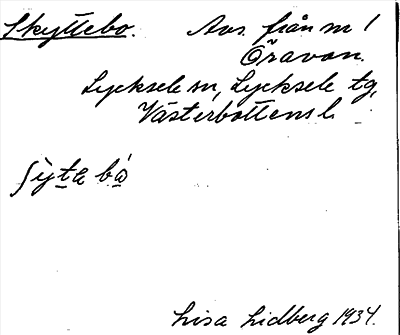 Skyttebo. Avs. från m 1
Öravan.
Lycksele sn, Lycksele tg,
Västerbottens l.
ʃỳta bå
Lisa Lidberg 1934.